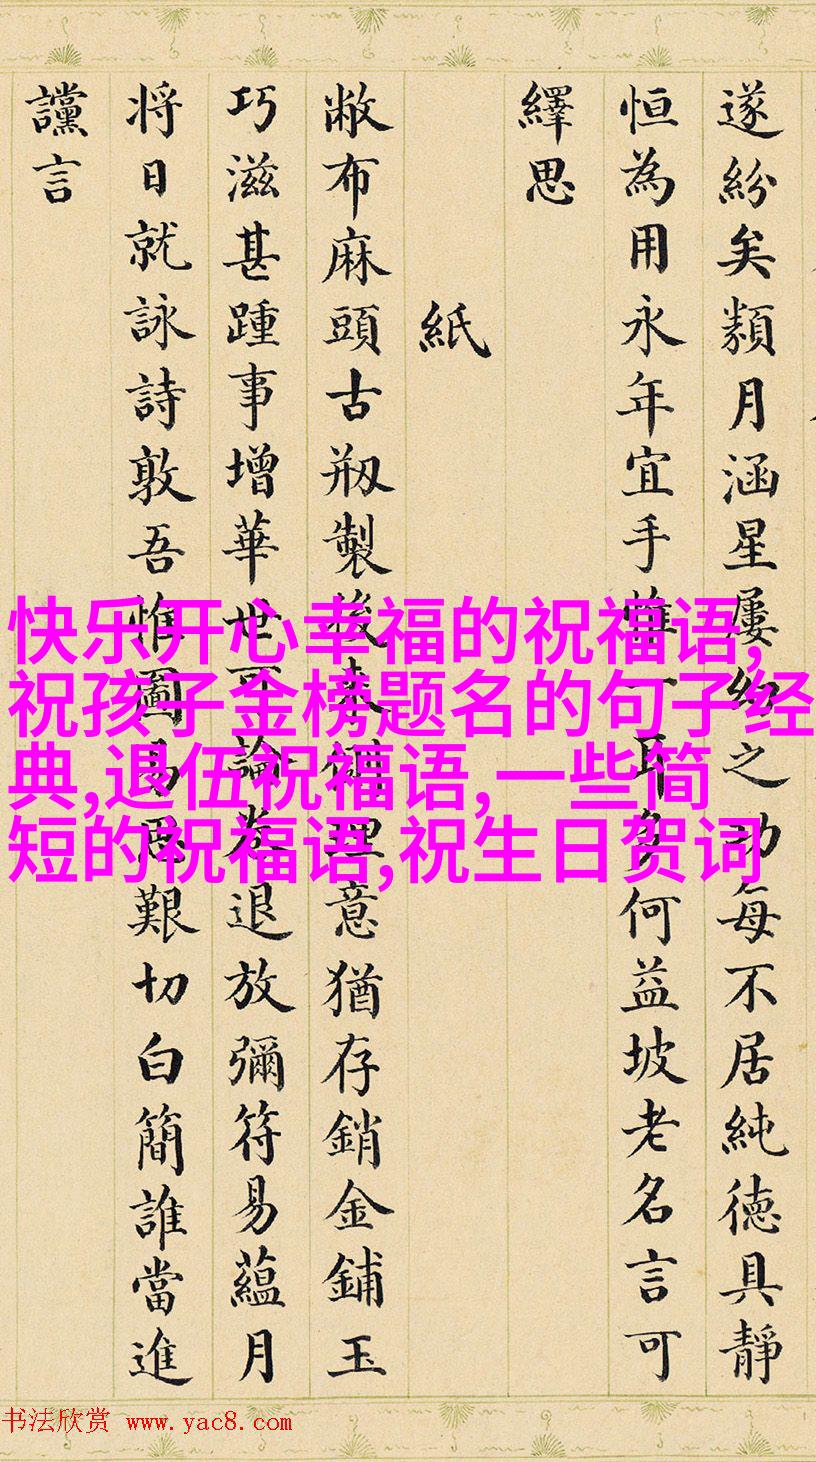 遂紛矣類月涵星屢之功每不居純德具靜
恒為用永年宜手惟一耶多何益坡老名言可
繹思
紙
敝布麻頭古剏製後来理意猶存銷金鋪玉
巧滋甚踵事增華世可論退放彌符易蘊月
将日就詠詩敦吾惟圖易思艱切白簡誰當進
讜言
快乐开心幸福的祝福语,
祝孩子金榜题名的句子经
典,退伍祝福语,一些简
短的祝福语,祝生日贺词
书法欣赏 www.yac8.com